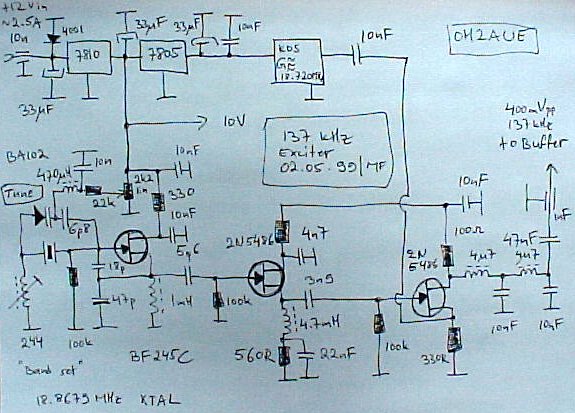 +12Vin
~2.5A
4001
10n
33µF
7810
33µF
7805
33µF
10nF
KOS
G≈
18.720MHz
10nF
OH2AUE
10V
137 kHz
Exciter
02.05.99/MF
400mVpp
137kHz
to Buffer
BA102
470µH
10n
Tune
22k
2k2
lin
10nF
330
10nF
6p8
18p
47p
5p6
1mH
100k
244
"Band set"
BF245C
2N5486
4n7
100k
3n9
4.7mH
560R
22nF
10nF
100R
2N
5486
4µ7
4µ7
47nF
1nF
10nF
10nF
100k
330R
18.8679 MHz XTAL